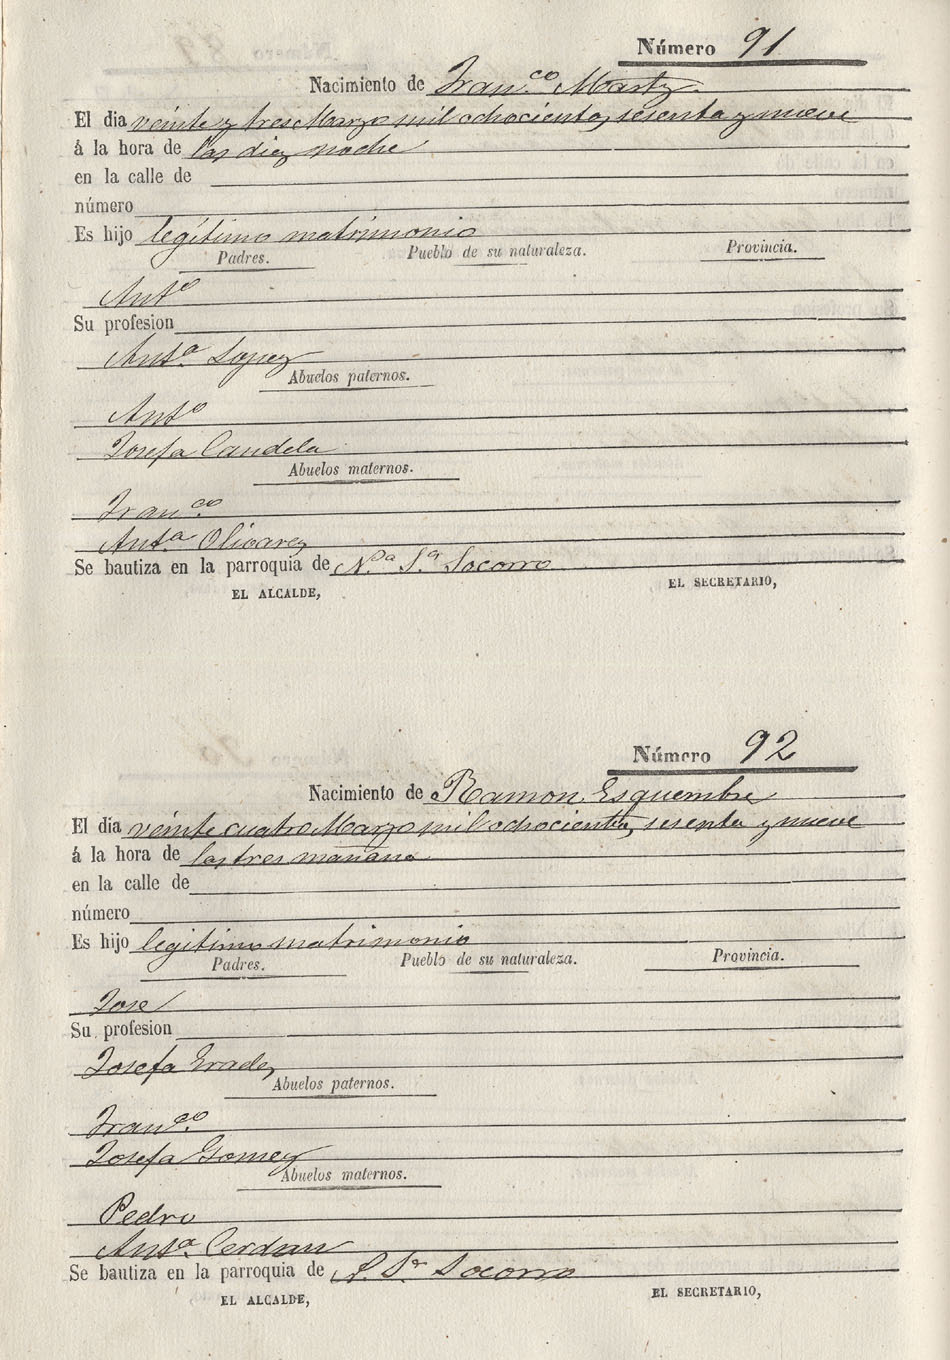 Número 91
Nacimiento de Fran.co Martz
El dia veinte y tres Marzo mil ochocientos sesenta y nueve
á la hora de las diez noche
en la calle de
número
Es hijo legítimo matrimonio
Padres. Pueblo de su naturaleza. Provincia.
Anto
Su profesion
Anta Lopez
Abuelos paternos.
Anto
Josefa Candela
Abuelos maternos.
Fran.co
Anta Olivares
Se bautiza en la parroquia de N.a S.a Socorro
EL ALCALDE, EL SECRETARIO,
Número 92
Nacimiento de Ramon Esquembre
El dia veinte cuatro Marzo mil ochocientos sesenta y nueve
á la hora de las tres mañana
en la calle de
número
Es hijo legitimo matrimonio
Padres. Pueblo de su naturaleza. Provincia.
Jose
Su profesion
Josefa
Abuelos paternos.
Fran.co
Josefa Gomez
Abuelos maternos.
Pedro
Anta Cerdan
Se bautiza en la parroquia de Socorro
EL ALCALDE, EL SECRETARIO,